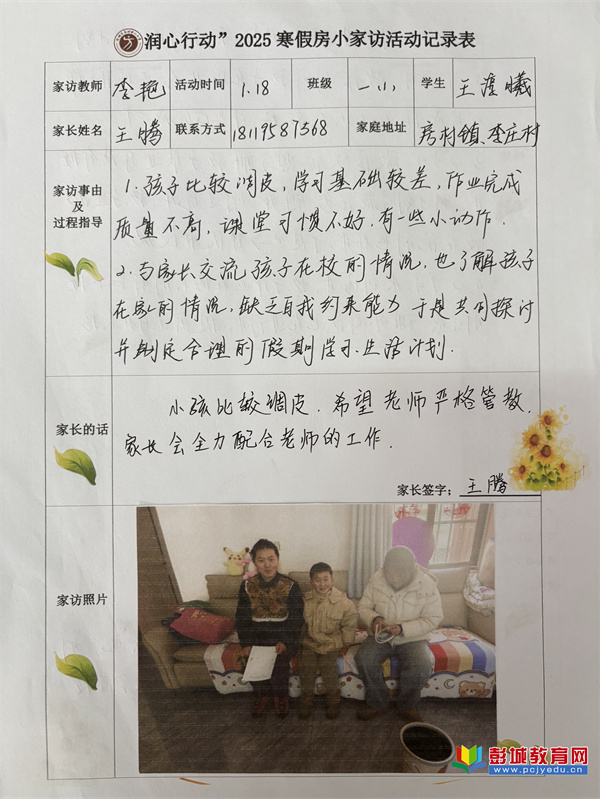 润心行动”2025寒假房小家访活动记录表
家访教师 李艳 活动时间 1.18 班级 一(1) 学生 王滢曦
家长姓名 王腾 联系方式 18119587368 家庭地址 房村镇、李庄村
家访事由
及
过程指导
1.孩子比较调皮，学习基础较差，作业完成
质量不高，课堂习惯不好.有一些小动作.
2.与家长交流孩子在校的情况，也了解孩子
在家的情况，缺乏自我约束能力 于是共同探讨
并制定合理的假期学习.生活计划.
家长的话
小孩比较调皮.希望老师严格管教,
家长会全力配合老师的工作.
家长签字：王腾
家访照片
彭城教育网
www.pcjyedu.cn